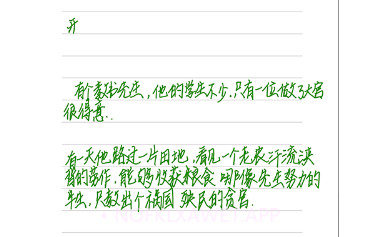 开
有个教书先生，他的学生不少，只有一位做了大官
很得意．
有一天他路过一片田地，看见一个老农汗流浃
背的劳作，能够收获粮食 哪像先生努力的
半生，只教出个祸国 殃民的贪官．
NOTRLXAWET.APP